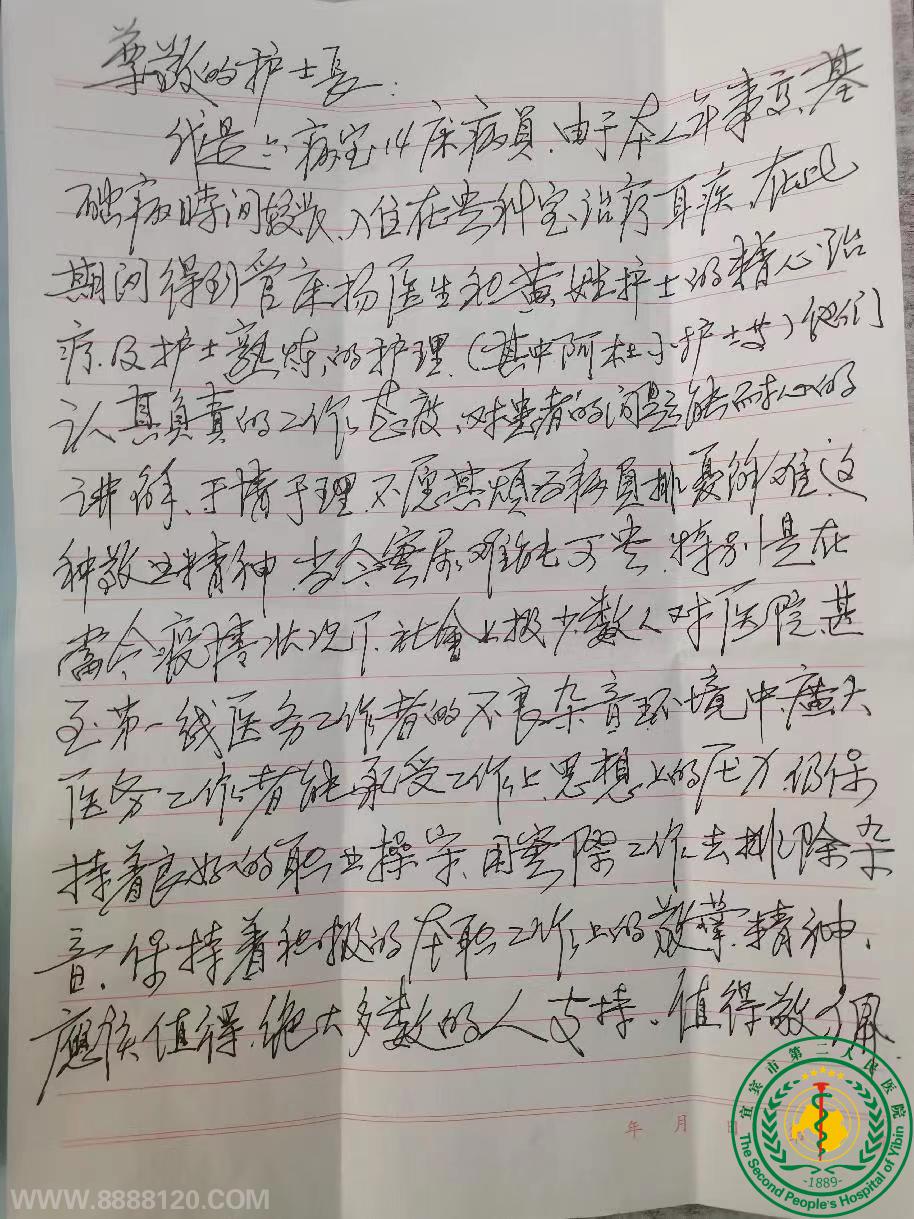 尊敬的护士長:
我是六病室14床病員.由于本人年事高、基
础病時间較长、入住在贵科室治疗耳疾、在此
期间得到管床杨医生和黄姓护士的精心治
疗.及护士熟炼的护理.(其中阿杜小护士等)他们
认真負責的工作态度、对患者的问题能耐心的
讲解、于情于理.不厭其煩为病員排憂解难.这
种敬业精神.当今實属难能可贵.特别是在
當今疫情状况下.社會上极少數人对医院.甚
至第一线医务工作者的不良杂音环境中.廣大
医务工作者能承受工作上.思想上的压力.仍保
持着良好的职业操守.用實際工作去排除杂
音.保持着积极的本职工作上的敬業精神.
應该值得.绝大多数的人支持.值得敬佩.
年 月 日
宜宾市第二人民医院
The Second People's Hospital of Yibin
-1889-
WWW.8888120.COM